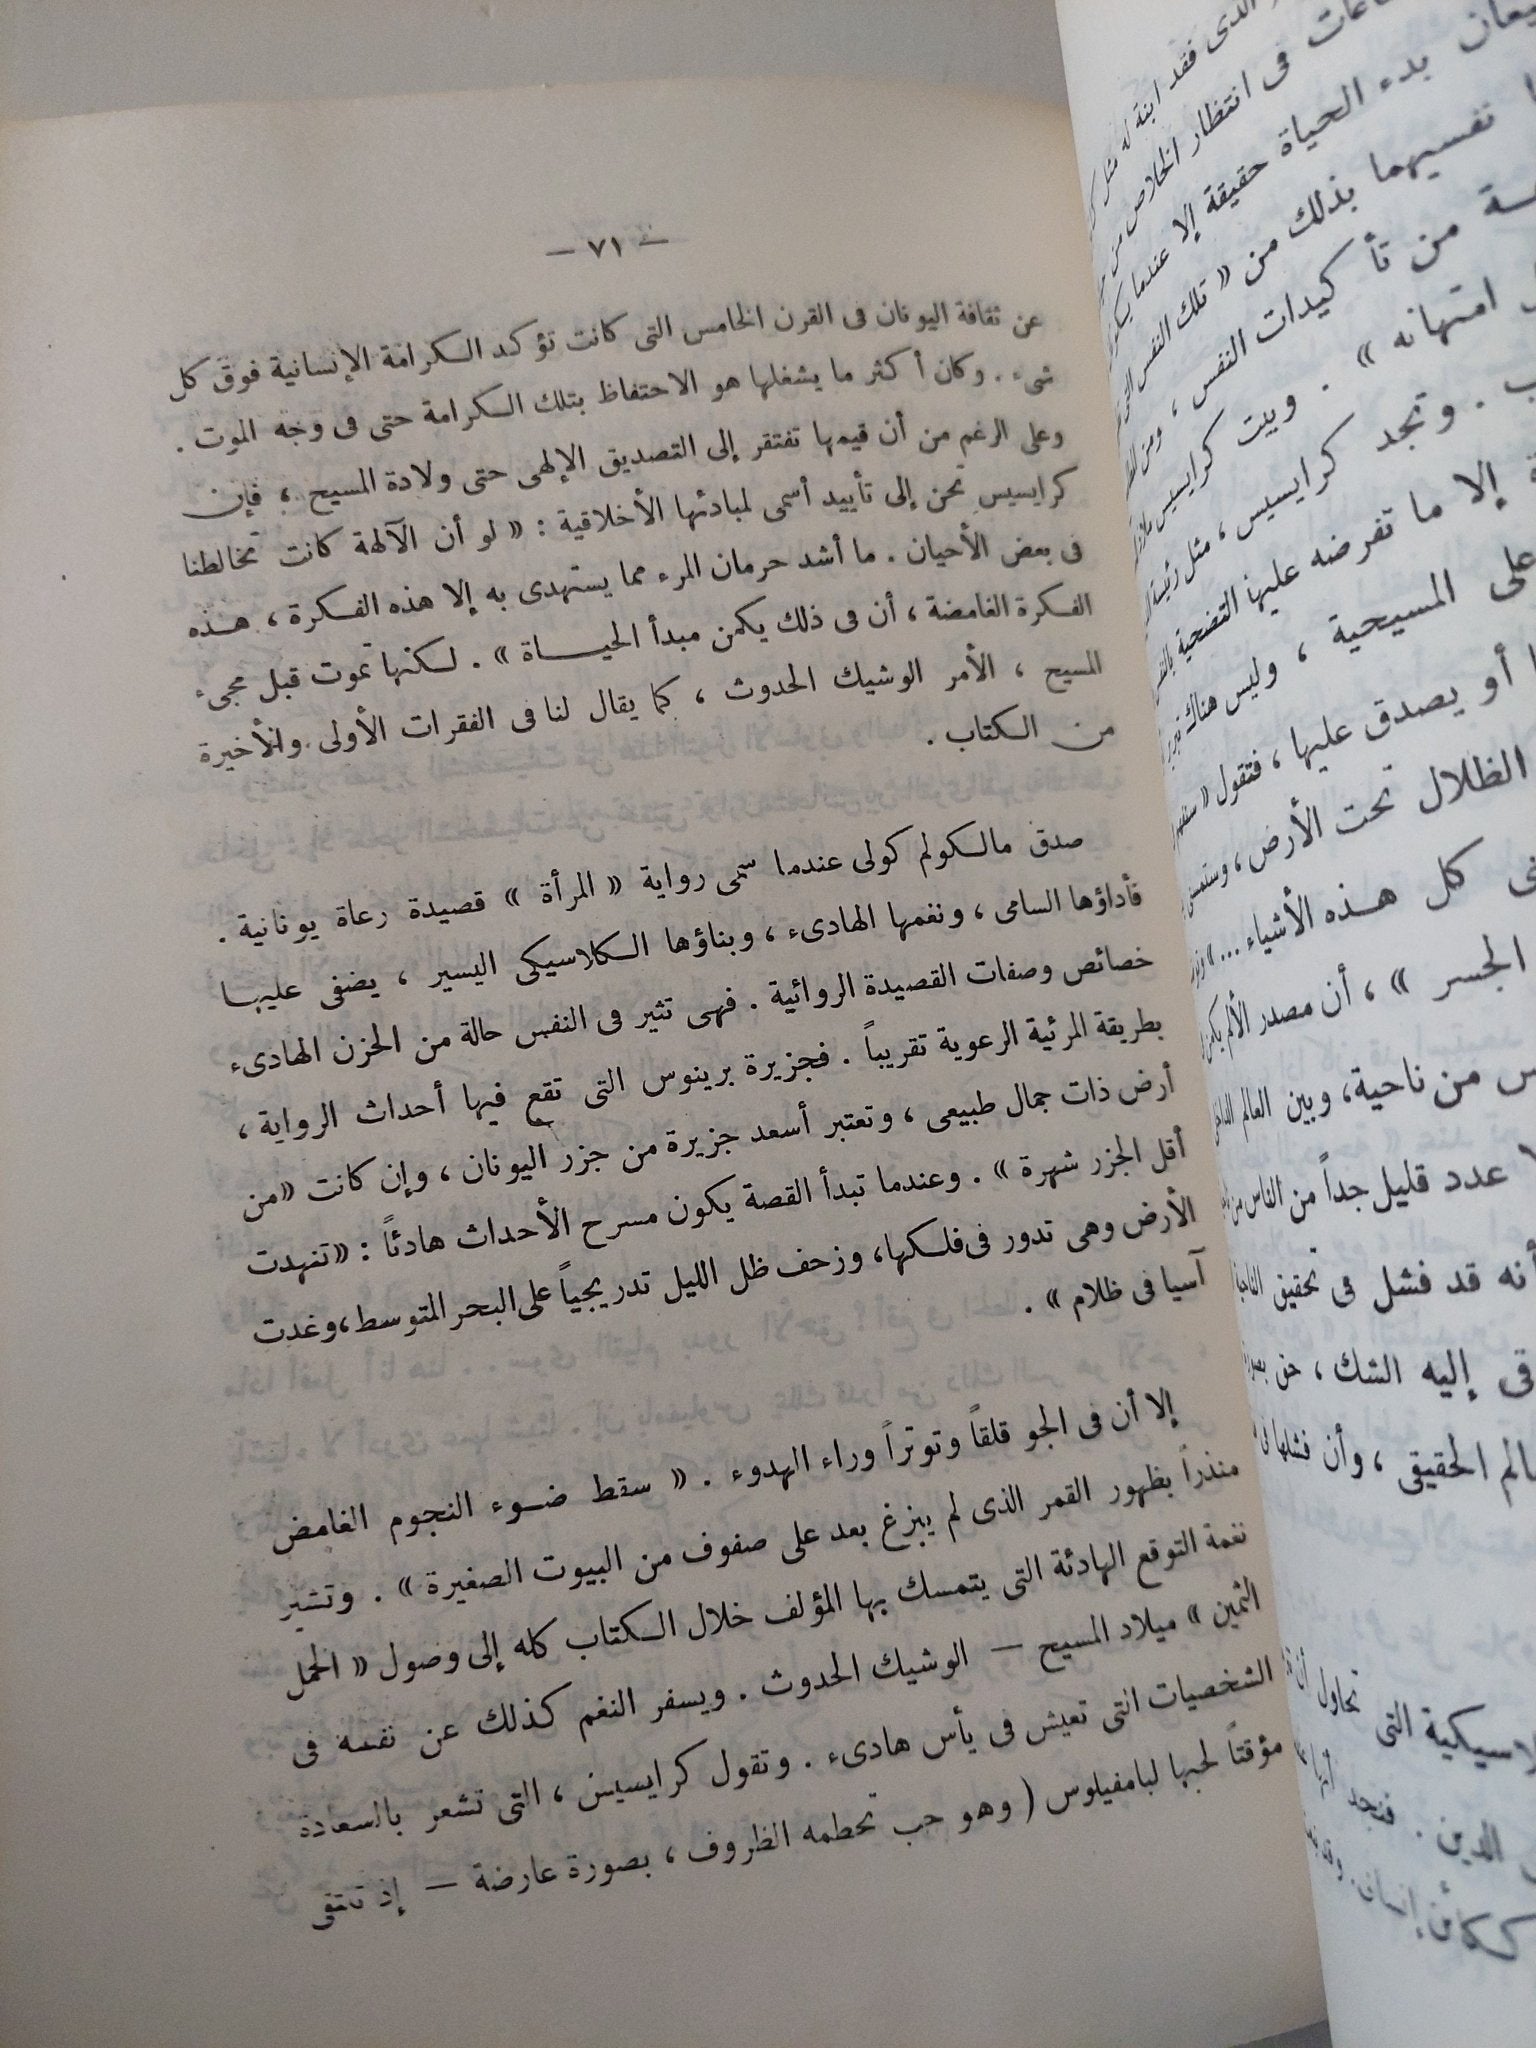 — ٧١ —
عن ثقافة اليونان فى القرن الخامس التى كانت تؤكد الكرامة الإنسانية فوق كل
شىء . وكان أكثر ما يشغلها هو الاحتفاظ بتلك الكرامة حتى فى وجه الموت .
وعلى الرغم من أن قيمها تفتقر إلى التصديق الإلهى حتى ولادة المسيح ، فإن
كرايسيس تحن إلى تأييد أسمى لمبادئها الأخلاقية : « لو أن الآلهة كانت تخالطنا
فى بعض الأحيان . ما أشد حرمان المرء مما يستهدى به إلا هذه الفكرة ، هذه
الفكرة الغامضة ، أن فى ذلك يكمن مبدأ الحياة » . لكنها تموت قبل مجىء
المسيح ، الأمر الوشيك الحدوث ، كما يقال لنا فى الفقرات الأولى والأخيرة
من الكتاب .
صدق مالكولم كولى عندما سمى رواية « المرأة » قصيدة رعاة يونانية .
فأداؤها السامى ، ونغمها الهادىء ، وبناؤها الكلاسيكى اليسير ، يضفى عليها
خصائص وصفات القصيدة الروائية . فهى تثير فى النفس حالة من الحزن الهادىء
بطريقة المرثية الرعوية تقريباً . فجزيرة برينوس التى تقع فيها أحداث الرواية ،
أرض ذات جمال طبيعى ، وتعتبر أسعد جزيرة من جزر اليونان ، وإن كانت «من
أقل الجزر شهرة » . وعندما تبدأ القصة يكون مسرح الأحداث هادئاً : «تنهدت
الأرض وهى تدور فى فلكها، وزحف ظل الليل تدريجياً على البحر المتوسط، وغدت
آسيا فى ظلام » .
إلا أن فى الجو قلقاً وتوتراً وراء الهدوء . « سقط ضوء النجوم الغامض
منذراً بظهور القمر الذى لم يبزغ بعد على صفوف من البيوت الصغيرة » . وتشير
نغمة التوقع الهادئة التى يتمسك بها المؤلف خلال الكتاب كله إلى وصول « الحمل
الثمين » ميلاد المسيح — الوشيك الحدوث . ويسفر النغم كذلك عن نفسه فى
الشخصيات التى تعيش فى يأس هادىء . وتقول كرايسيس ، التى تشعر بالسعادة
مؤقتاً لحبها لبامفيلوس ( وهو حب تحطمه الظروف ، بصورة عارضة — إذ تلتقى
الذى فقد ابنة له مثل
فى انتظار الخلاص من
بدء الحياة حقيقة إلا عندما
نفسيهما بذلك من « تلك النفس
من تأكيدات النفس ، ومن
امتهانه » . وبيت كرايسيس
. وتجد كرايسيس ، مثل
إلا ما تفرضه عليها التضحية
على المسيحية ، وليس هناك
أو يصدق عليها ، فتقول
الظلال تحت الأرض ،
كل هذه الأشياء ... »
الجسر » ، أن مصدر الألم
من ناحية، وبين العالم
عدد قليل جداً من الناس
أنه قد فشل فى تحقيق
إليه الشك ،
الحقيقى ، وأن فشلها
التى تحاول
الدين . فنجد